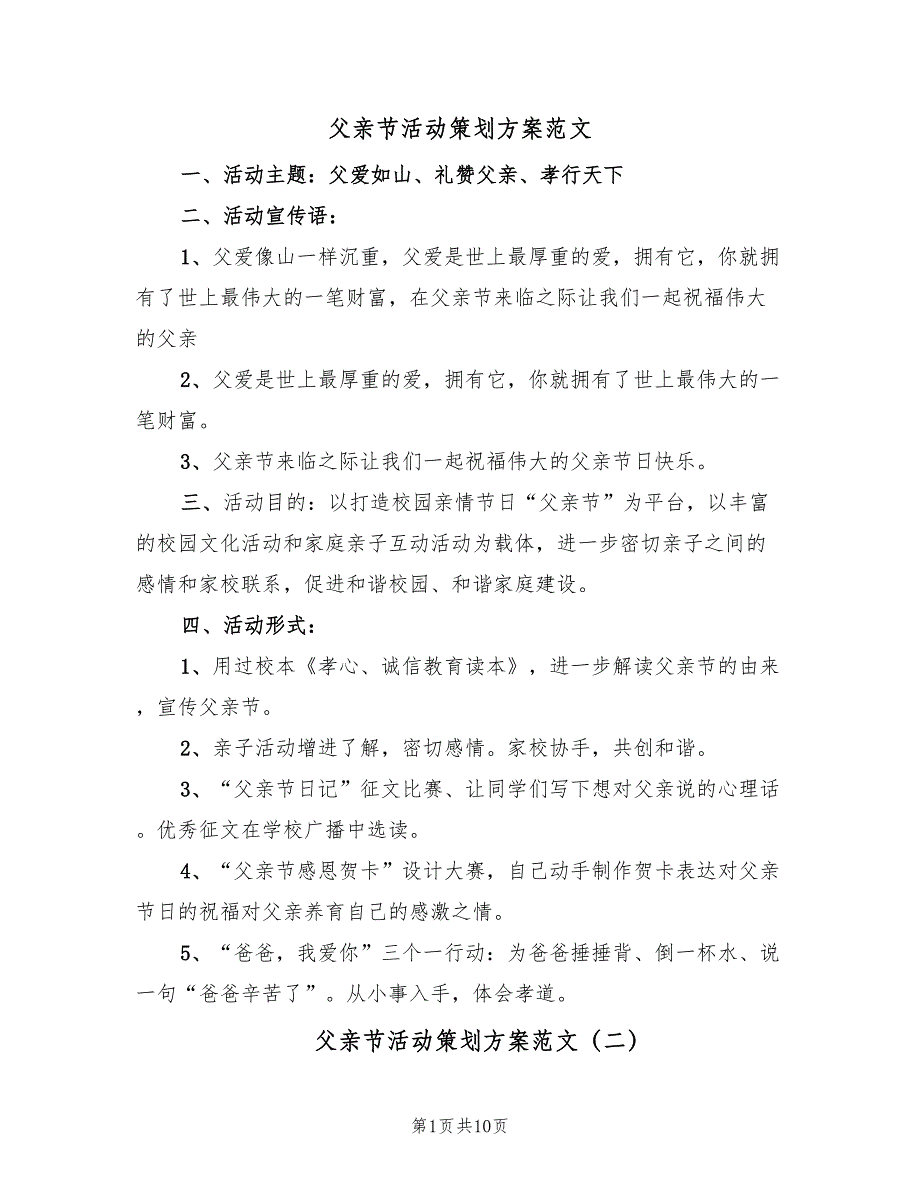 父亲节活动策划方案范文
一、活动主题：父爱如山、礼赞父亲、孝行天下
二、活动宣传语：
1、父爱像山一样沉重，父爱是世上最厚重的爱，拥有它，你就拥
有了世上最伟大的一笔财富，在父亲节来临之际让我们一起祝福伟大
的父亲
2、父爱是世上最厚重的爱，拥有它，你就拥有了世上最伟大的一
笔财富。
3、父亲节来临之际让我们一起祝福伟大的父亲节日快乐。
三、活动目的：以打造校园亲情节日“父亲节”为平台，以丰富
的校园文化活动和家庭亲子互动活动为载体，进一步密切亲子之间的
感情和家校联系，促进和谐校园、和谐家庭建设。
四、活动形式：
1、用过校本《孝心、诚信教育读本》，进一步解读父亲节的由来
，宣传父亲节。
2、亲子活动增进了解，密切感情。家校协手，共创和谐。
3、“父亲节日记”征文比赛、让同学们写下想对父亲说的心理话
。优秀征文在学校广播中选读。
4、“父亲节感恩贺卡”设计大赛，自己动手制作贺卡表达对父亲
节日的祝福对父亲养育自己的感激之情。
5、“爸爸，我爱你”三个一行动：为爸爸捶捶背、倒一杯水、说
一句“爸爸辛苦了”。从小事入手，体会孝道。
父亲节活动策划方案范文（二）
第1页共10页